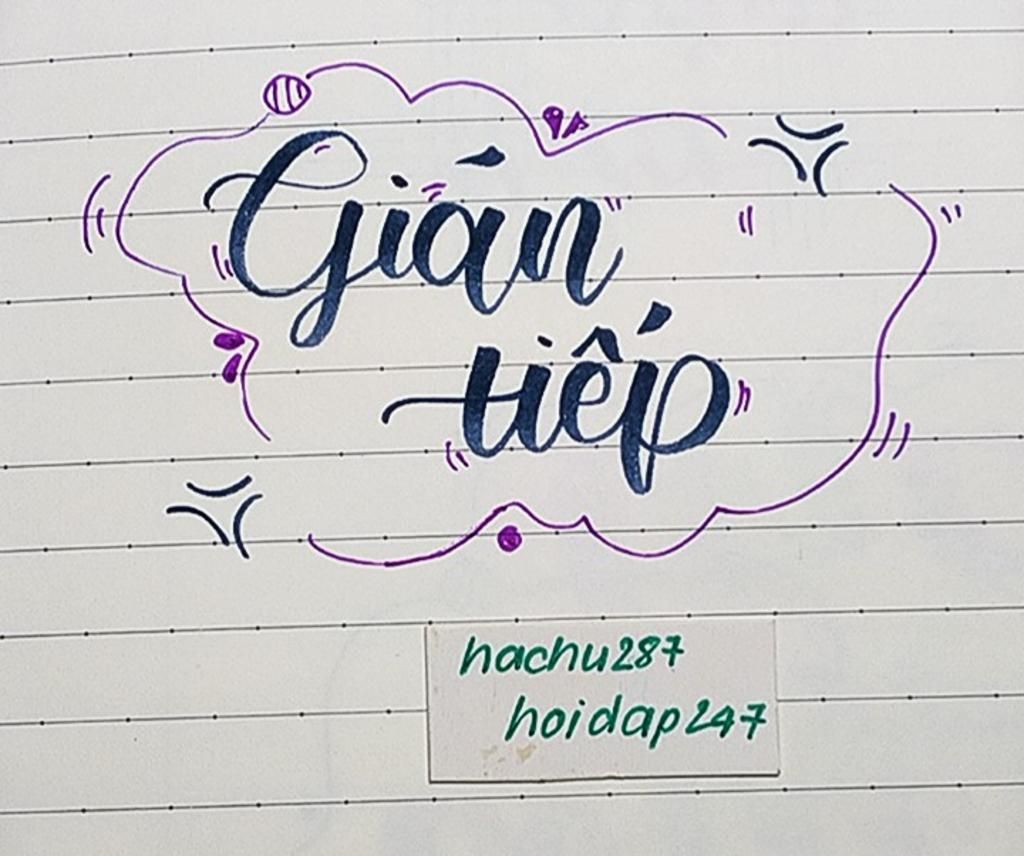 Gián
tiếp
hachu287
hoidap247